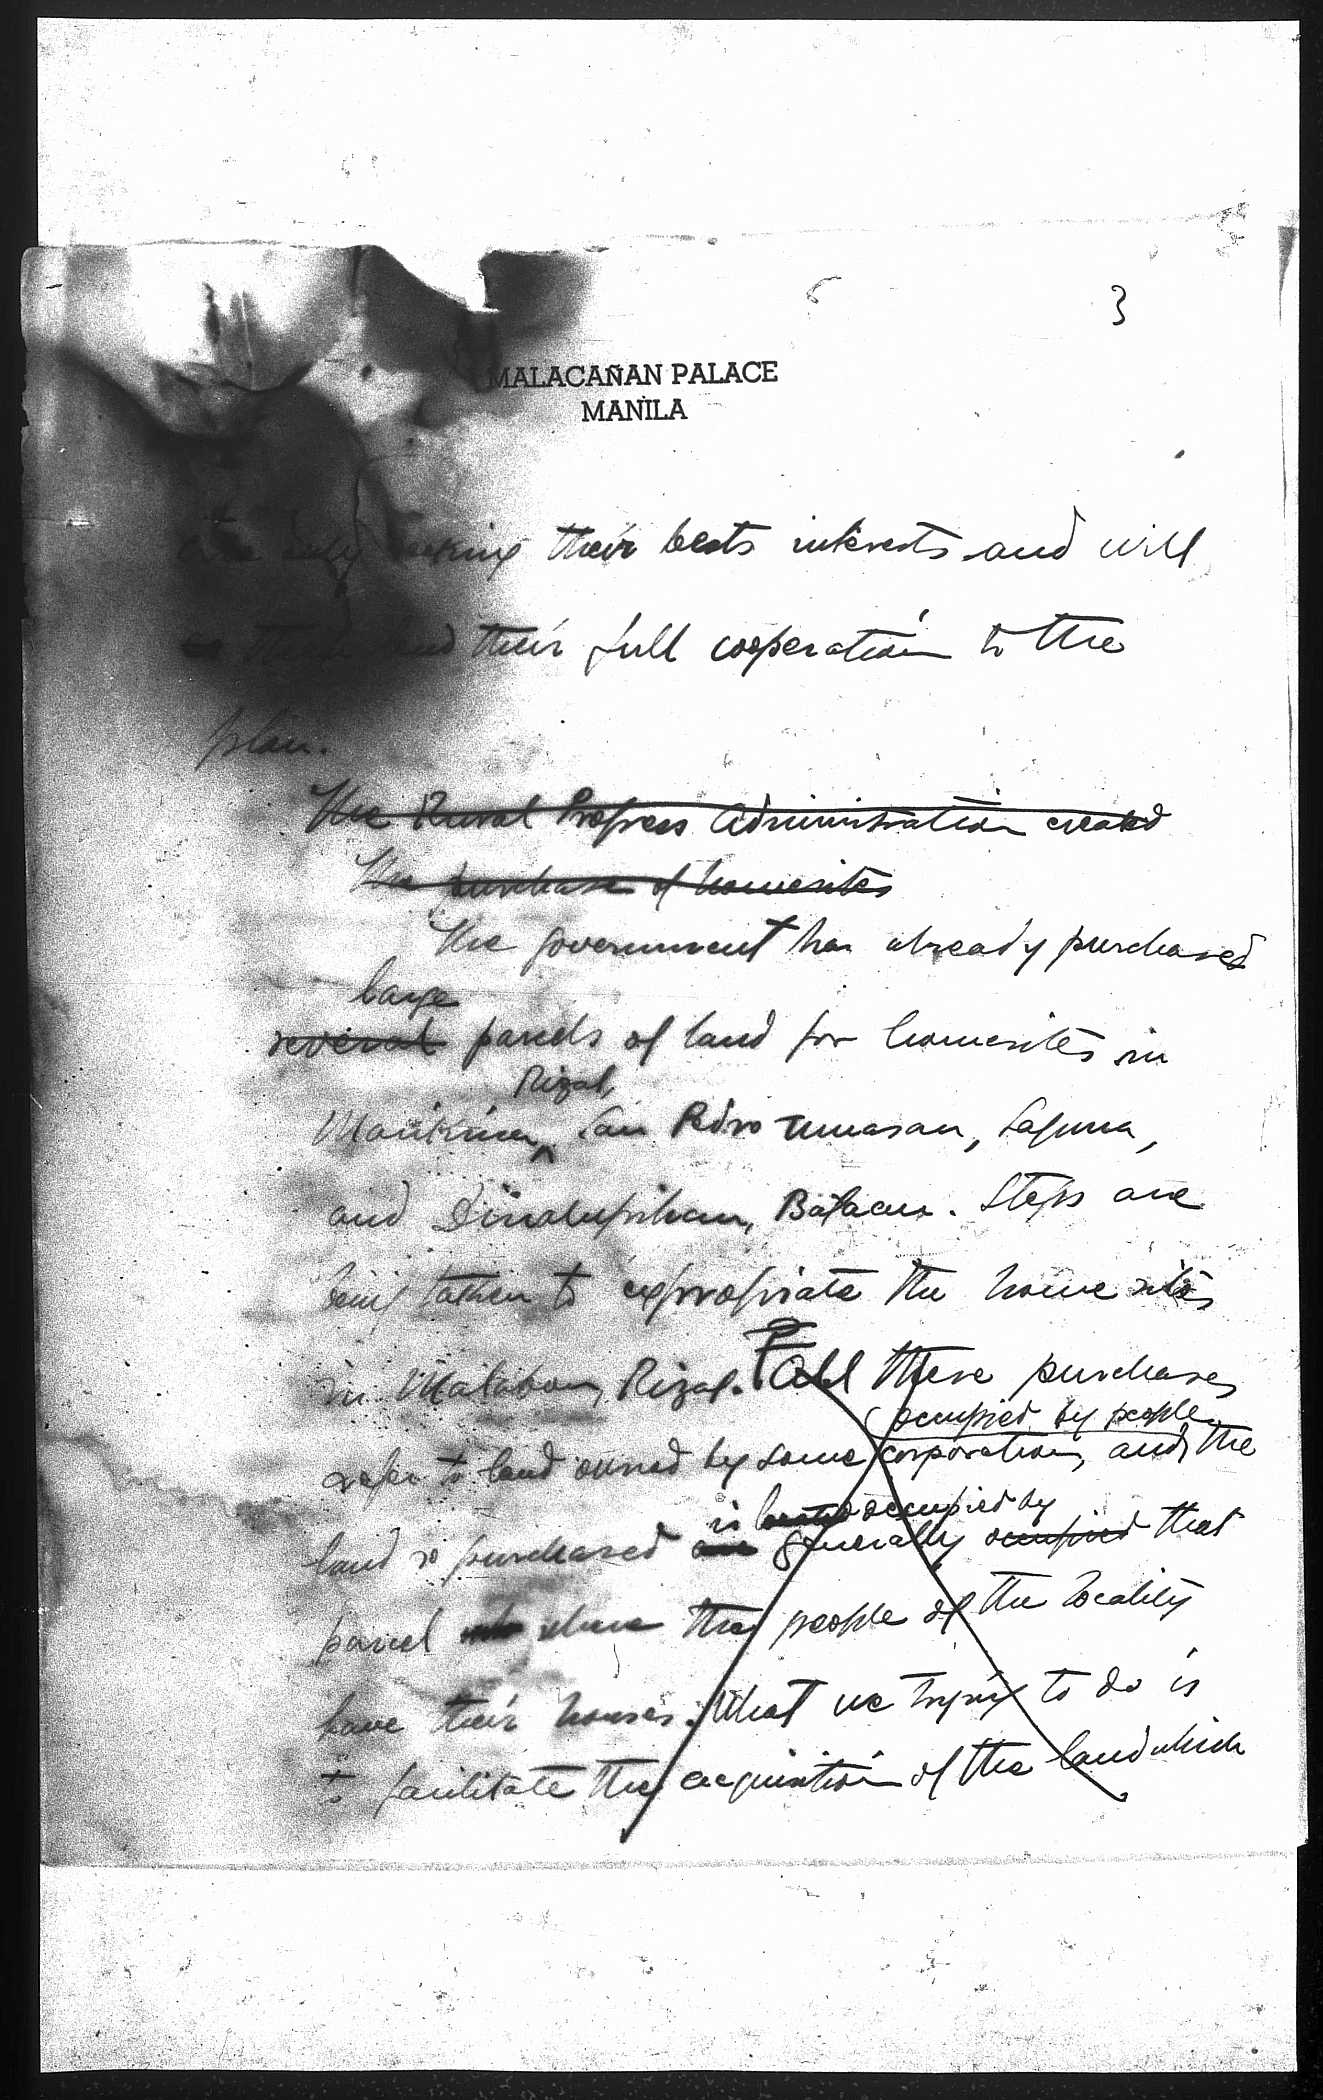 3
MALACAÑAN PALACE
MANILA
are only seeking their bests interests and will
their full cooperation to the
plan.
The Rural Progress Administration created
The purchase of homesites
The government has already purchased
large
several parcels of land for homesites in
Rizal,
Marikina, San Pedro Tunasan, Laguna,
and Dinalupihan, Bataan. Steps are
being taken to expropriate the home sites
in Malabon, Rizal. All these purchases
occupied by people
refer to land owned by some corporation, and the
is located occupied by
land so purchased are generally occupied that
parcel where the people of the locality
have their houses. What we trying to do is
to facilitate the acquisition of the land which